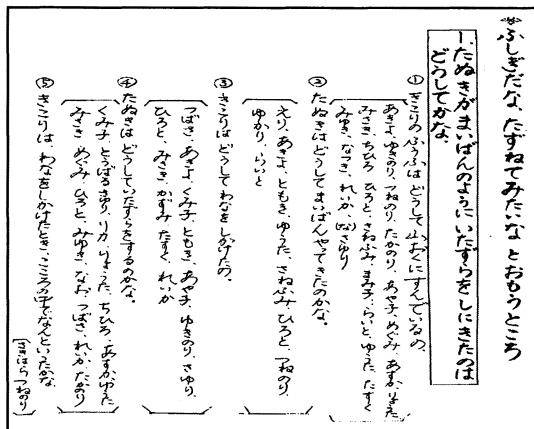 ふしぎだな、たずねてみたいな とおもうところ
1. たぬきがまいばんのようにいたずらをしにきたのは
どうしてかな。
① きこりのふうふは どうして山おくにすんでいるの。
あきよ、ゆきのり、つねのり、たかのり、あや子、めぐみ、あすか、
みさき、ちひろ、ひろと、さねふみ、まみ子、らいと、ゆうた、たすく
みゆき、なつき、れいか、さゆり
② たぬきはどうしてまいばんやってきたのかな。
えり、あきよ、ともき、ゆうた、さねふみ、ひろと、つねのり、
ゆかり、らいと
③ きこりは どうしてわなをしかけたの。
つばさ、あきよ、くみ子、ともき、あや子、ゆきのり、さゆり、
ひろと、みさき、かずみ、たすく、れいか
④ たぬきは どうしていたずらをするのかな。
くみ子、とうばるさゆり、リカ、りょうた、ちひろ、あすか、ゆうた
みさき、めぐみ、ひろと、みゆき、なお、つばさ、れいか、たかのり
⑤ きこりは、わなをしかけたとき、こころの中でなんといったかな。
さきはら つねのり